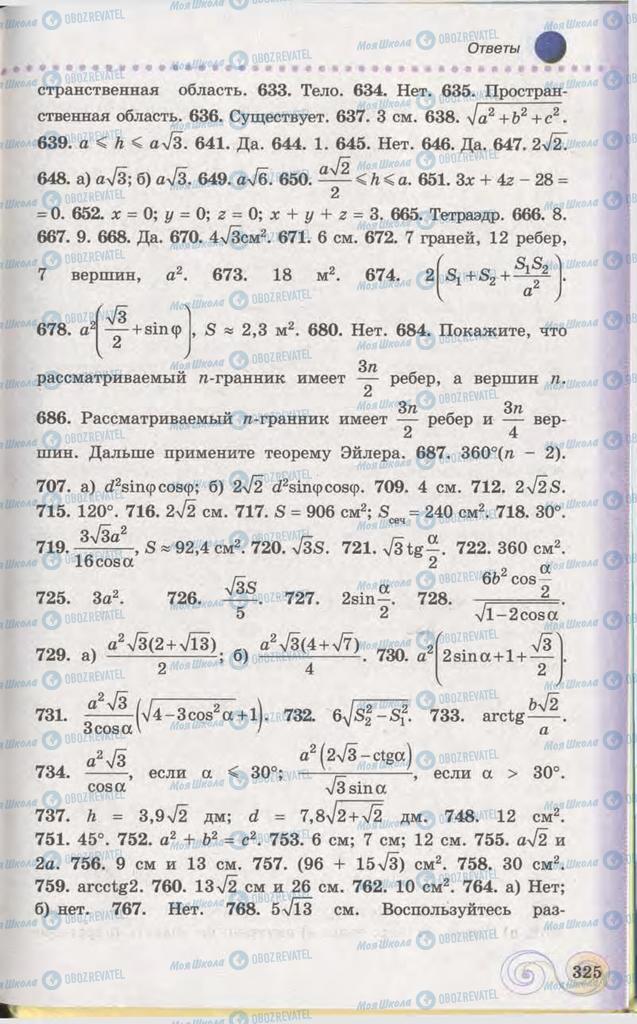 Ответы
странственная область. 633. Тело. 634. Нет. 635. Простран-
ственная область. 636. Существует. 637. 3 см. 638. √(a²+b²+c²).
639. a ⩽ h ⩽ a√3. 641. Да. 644. 1. 645. Нет. 646. Да. 647. 2√2.
648. а) a√3; б) a√3. 649. a√6. 650. a√2/2 ⩽ h ⩽ a. 651. 3x + 4z − 28 =
= 0. 652. x = 0; y = 0; z = 0; x + y + z = 3. 665. Тетраэдр. 666. 8.
667. 9. 668. Да. 670. 4√3см². 671. 6 см. 672. 7 граней, 12 ребер,
7 вершин, a². 673. 18 м². 674. 2(S₁+S₂+S₁S₂/a²).
678. a²(√3/2+sinφ), S ≈ 2,3 м². 680. Нет. 684. Покажите, что
рассматриваемый n-гранник имеет 3n/2 ребер, а вершин n.
686. Рассматриваемый n-гранник имеет 3n/2 ребер и 3n/4 вер-
шин. Дальше примените теорему Эйлера. 687. 360°(n − 2).
707. а) d²sinφcosφ; б) 2√2 d²sinφcosφ. 709. 4 см. 712. 2√2S.
715. 120°. 716. 2√2 см. 717. S = 906 см²; Sсеч = 240 см². 718. 30°.
719. 3√3a²/16cosα, S ≈ 92,4 см². 720. √3S. 721. √3tg α/2. 722. 360 см².
725. 3a². 726. √3S/5. 727. 2sin α/2. 728. 6b²cos α/2 / √(1−2cosα).
729. а) a²√3(2+√13)/2; б) a²√3(4+√7)/4. 730. a²(2sinα+1+√3/2).
731. a²√3/3cosα (√(4−3cos²α)+1). 732. 6√(S₂²−S₁²). 733. arctg b√2/a.
734. a²√3/cosα, если α ⩽ 30°; a²(2√3−ctgα)/√3sinα, если α > 30°.
737. h = 3,9√2 дм; d = 7,8√(2+√2) дм. 748. 12 см².
751. 45°. 752. a² + b² = c². 753. 6 см; 7 см; 12 см. 755. a√2 и
2a. 756. 9 см и 13 см. 757. (96 + 15√3) см². 758. 30 см².
759. arcctg2. 760. 13√2 см и 26 см. 762. 10 см². 764. а) Нет;
б) нет. 767. Нет. 768. 5√13 см. Воспользуйтесь раз-
325
МояШкола OBOZREVATEL